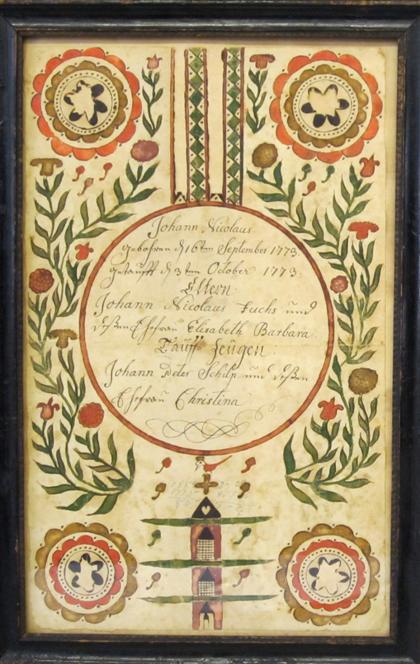 Johann Nicolaus
gebohren d 16ten September 1773.
getaufft d 3ten October 1773
Eltern
Johann Nicolaus Fuchs und
deßen Ehefrau Elisabeth Barbara.
Tauff Zeügen
Johann Peter Schilp und deßen
Ehefrau Christina